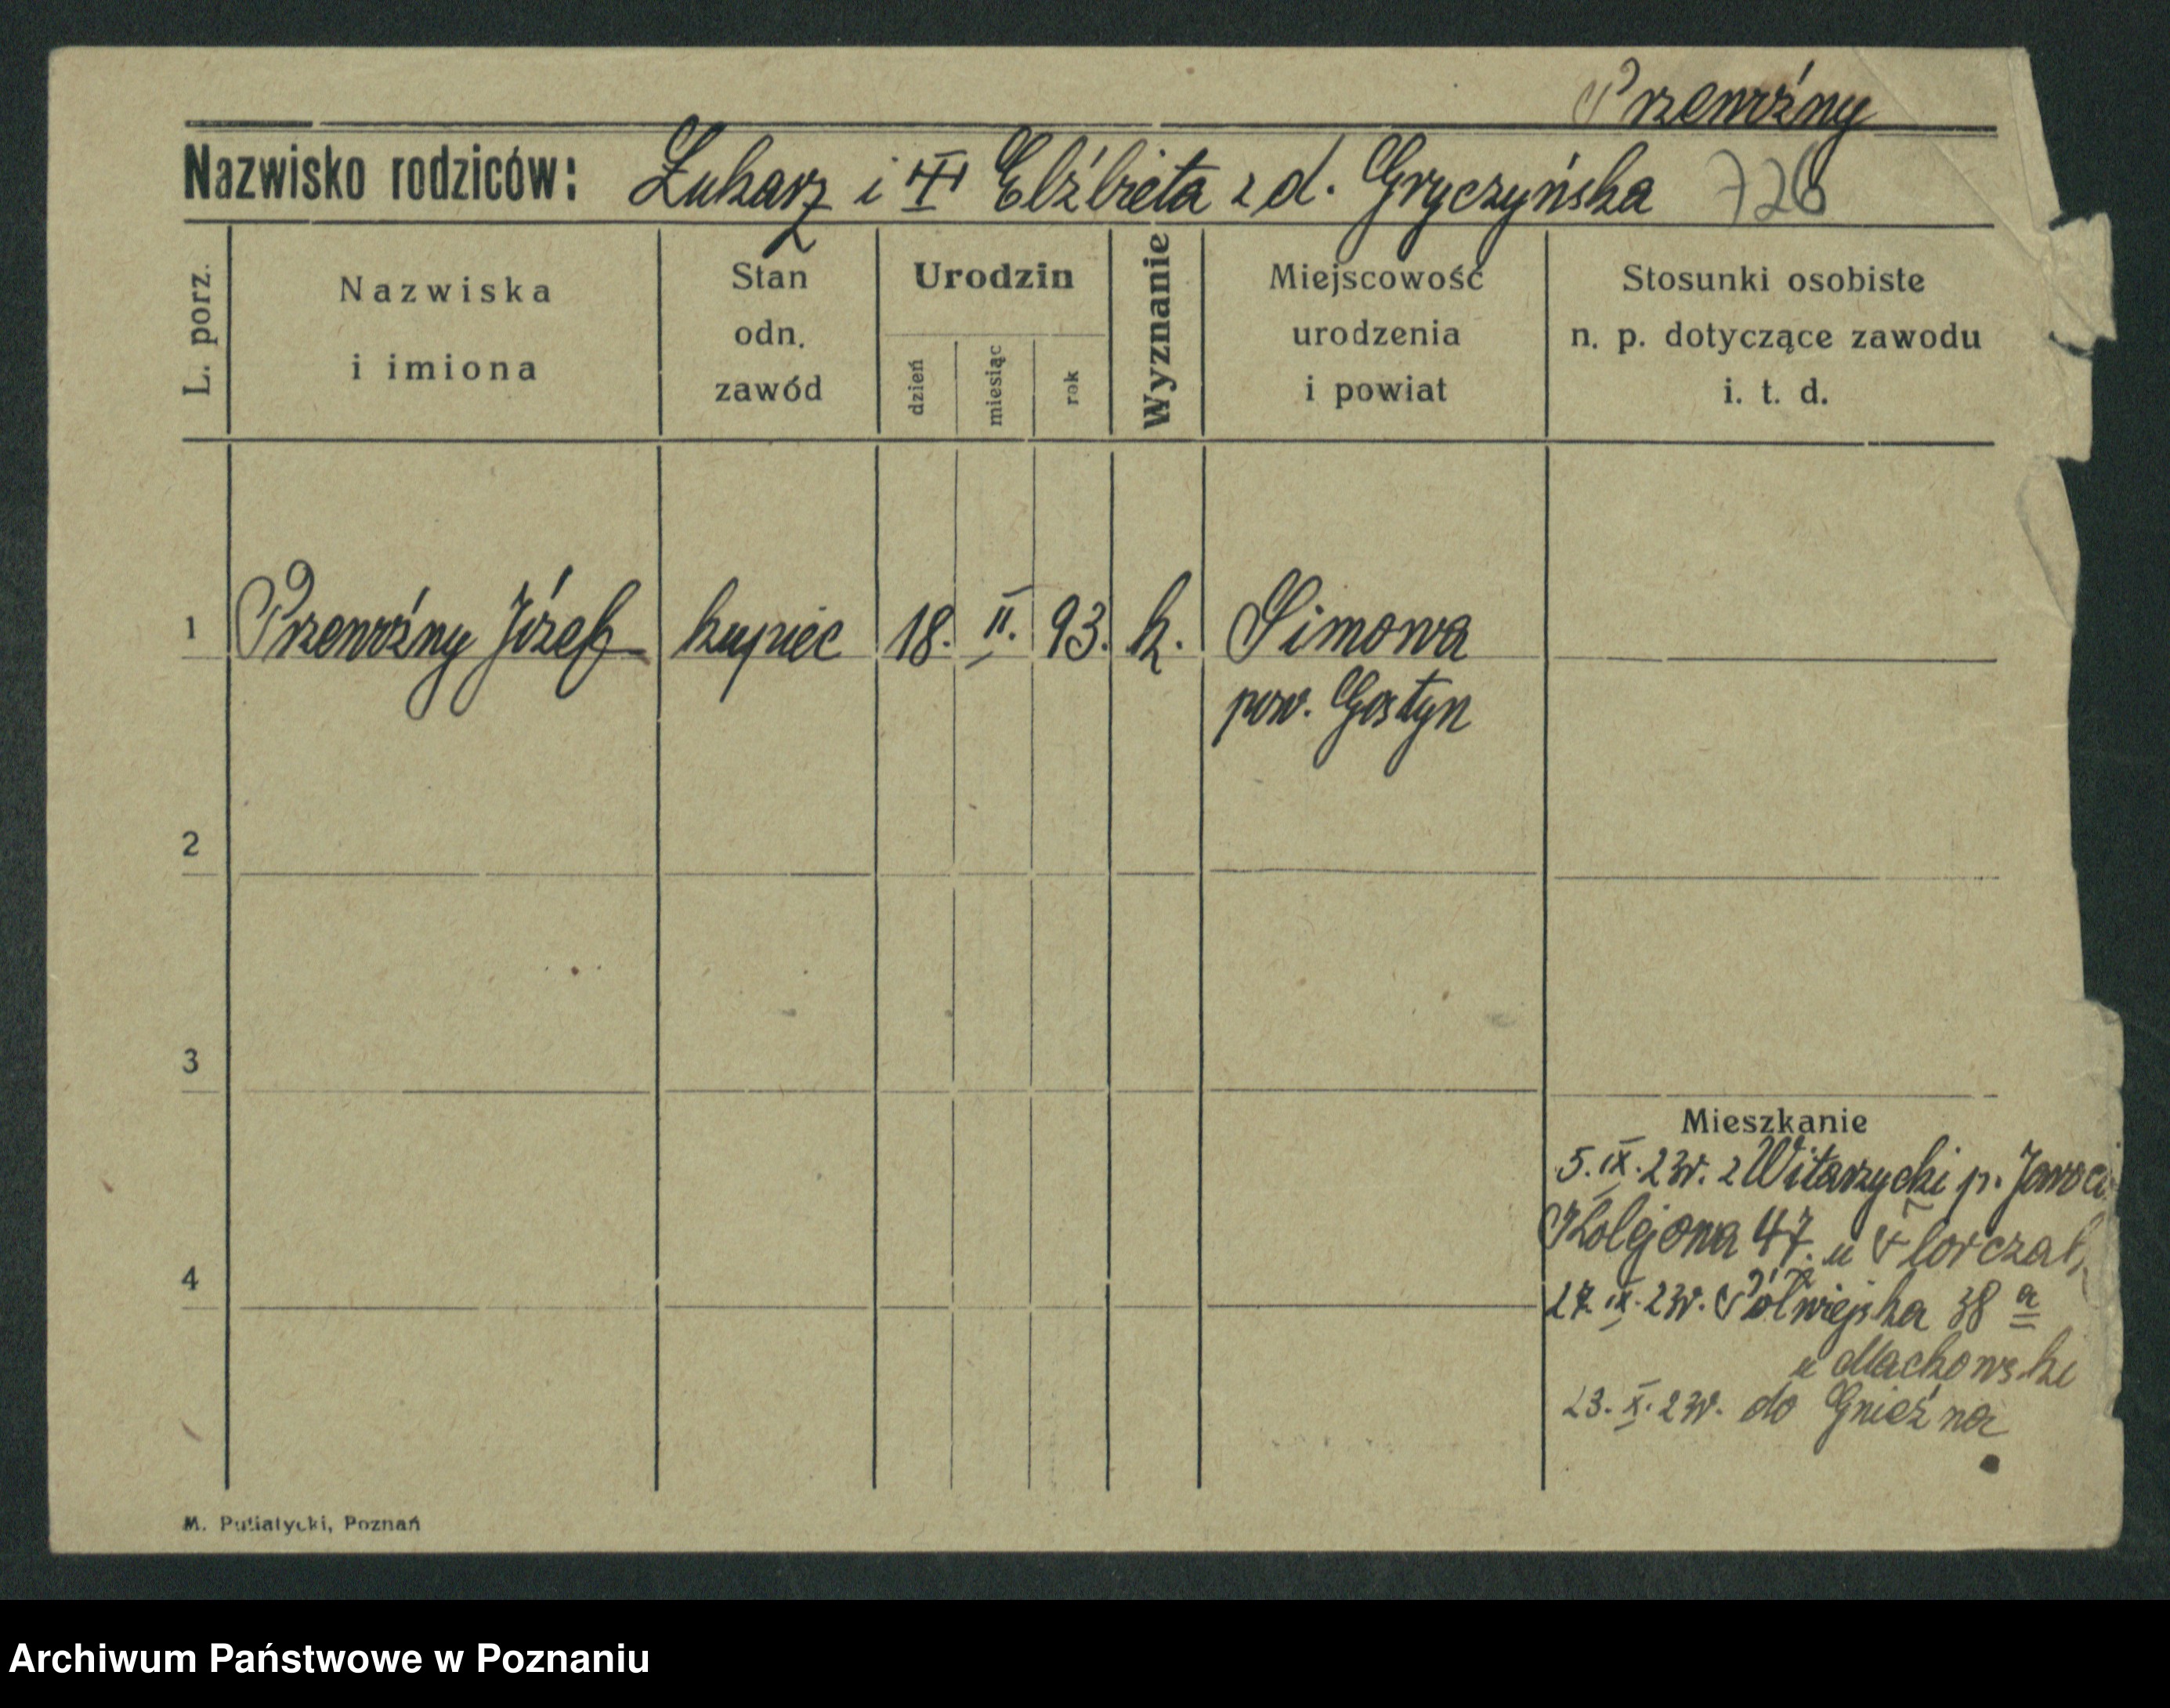 Przewoźny
Nazwisko rodziców: Łukasz i Elżbieta z d. Gryczyńska 726
L. porz.
Nazwiska
i imiona
Stan
odn.
zawód
Urodzin
dzień
miesiąc
rok
Wyznanie
Miejscowość
urodzenia
i powiat
Stosunki osobiste
n. p. dotyczące zawodu
i. t. d.
1 Przewoźny Józef kupiec 18. II. 93. k. Simowa
pow. Gostyn
2
3
Mieszkanie
5. IX. 23r. z Witaszycki p. Jaroci
Kolejowa 47. u Florczak
4
27. IX. 23r. Półwiejska 38 a
u Machowski
23. X. 23r. do Gniezna
M. Putiatycki, Poznań
Archiwum Państwowe w Poznaniu